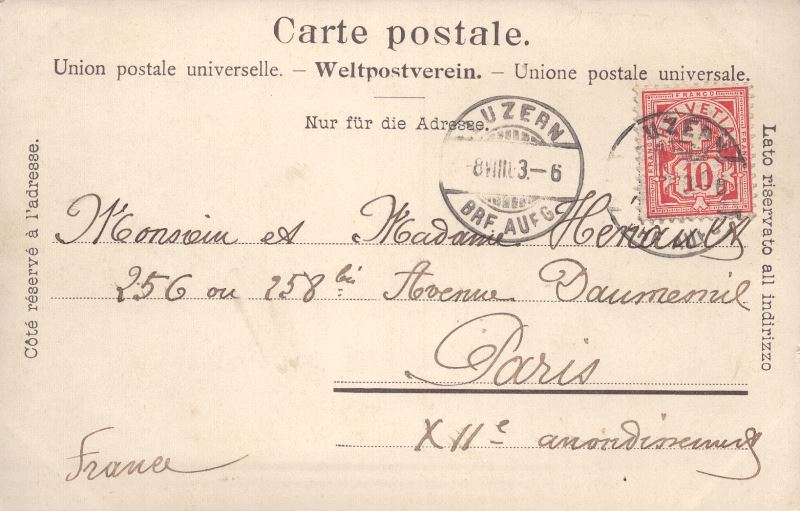 Carte postale.
Union postale universelle. – Weltpostverein. – Unione postale universale.
Nur für die Adresse.
Côté réservé à l'adresse.
Lato riservato all indirizzo
LUZERN
8 VIII 03.–6
BRF. AUFG.
FRANCO
HELVETIA
10
LUZERN
Monsieur et Madame Henault
256 ou 258 bis Avenue Daumesnil
Paris
XIIe arrondissement
France